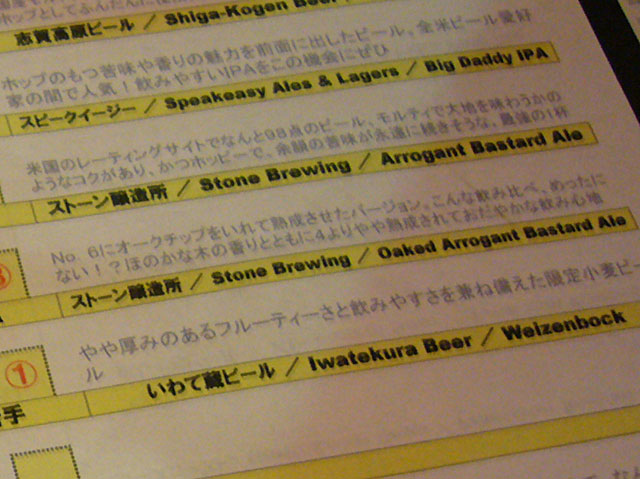 志賀高原ビール / Shiga-Kogen Beer
ホップのもつ苦味や香りの魅力を前面に出したビール。全米ビール愛好
家の間で人気！飲みやすいIPAをこの機会にぜひ
スピークイージー / Speakeasy Ales & Lagers / Big Daddy IPA
米国のレーティングサイトでなんと98点のビール。モルティで大地を味わうかの
ようなコクがあり、かつホッピーで、余韻の苦味が永遠に続きそうな、最後の1杯
ストーン醸造所 / Stone Brewing / Arrogant Bastard Ale
No. 6にオークチップをいれて熟成させたバージョン。こんな飲み比べ、めったに
ない！？ほのかな木の香りとともに4よりやや熟成されておだやかな飲み心地
ストーン醸造所 / Stone Brewing / Oaked Arrogant Bastard Ale
やや厚みのあるフルーティーさと飲みやすさを兼ね備えた限定小麦ビー
ル
①
手 いわて蔵ビール / Iwatekura Beer / Weizenbock